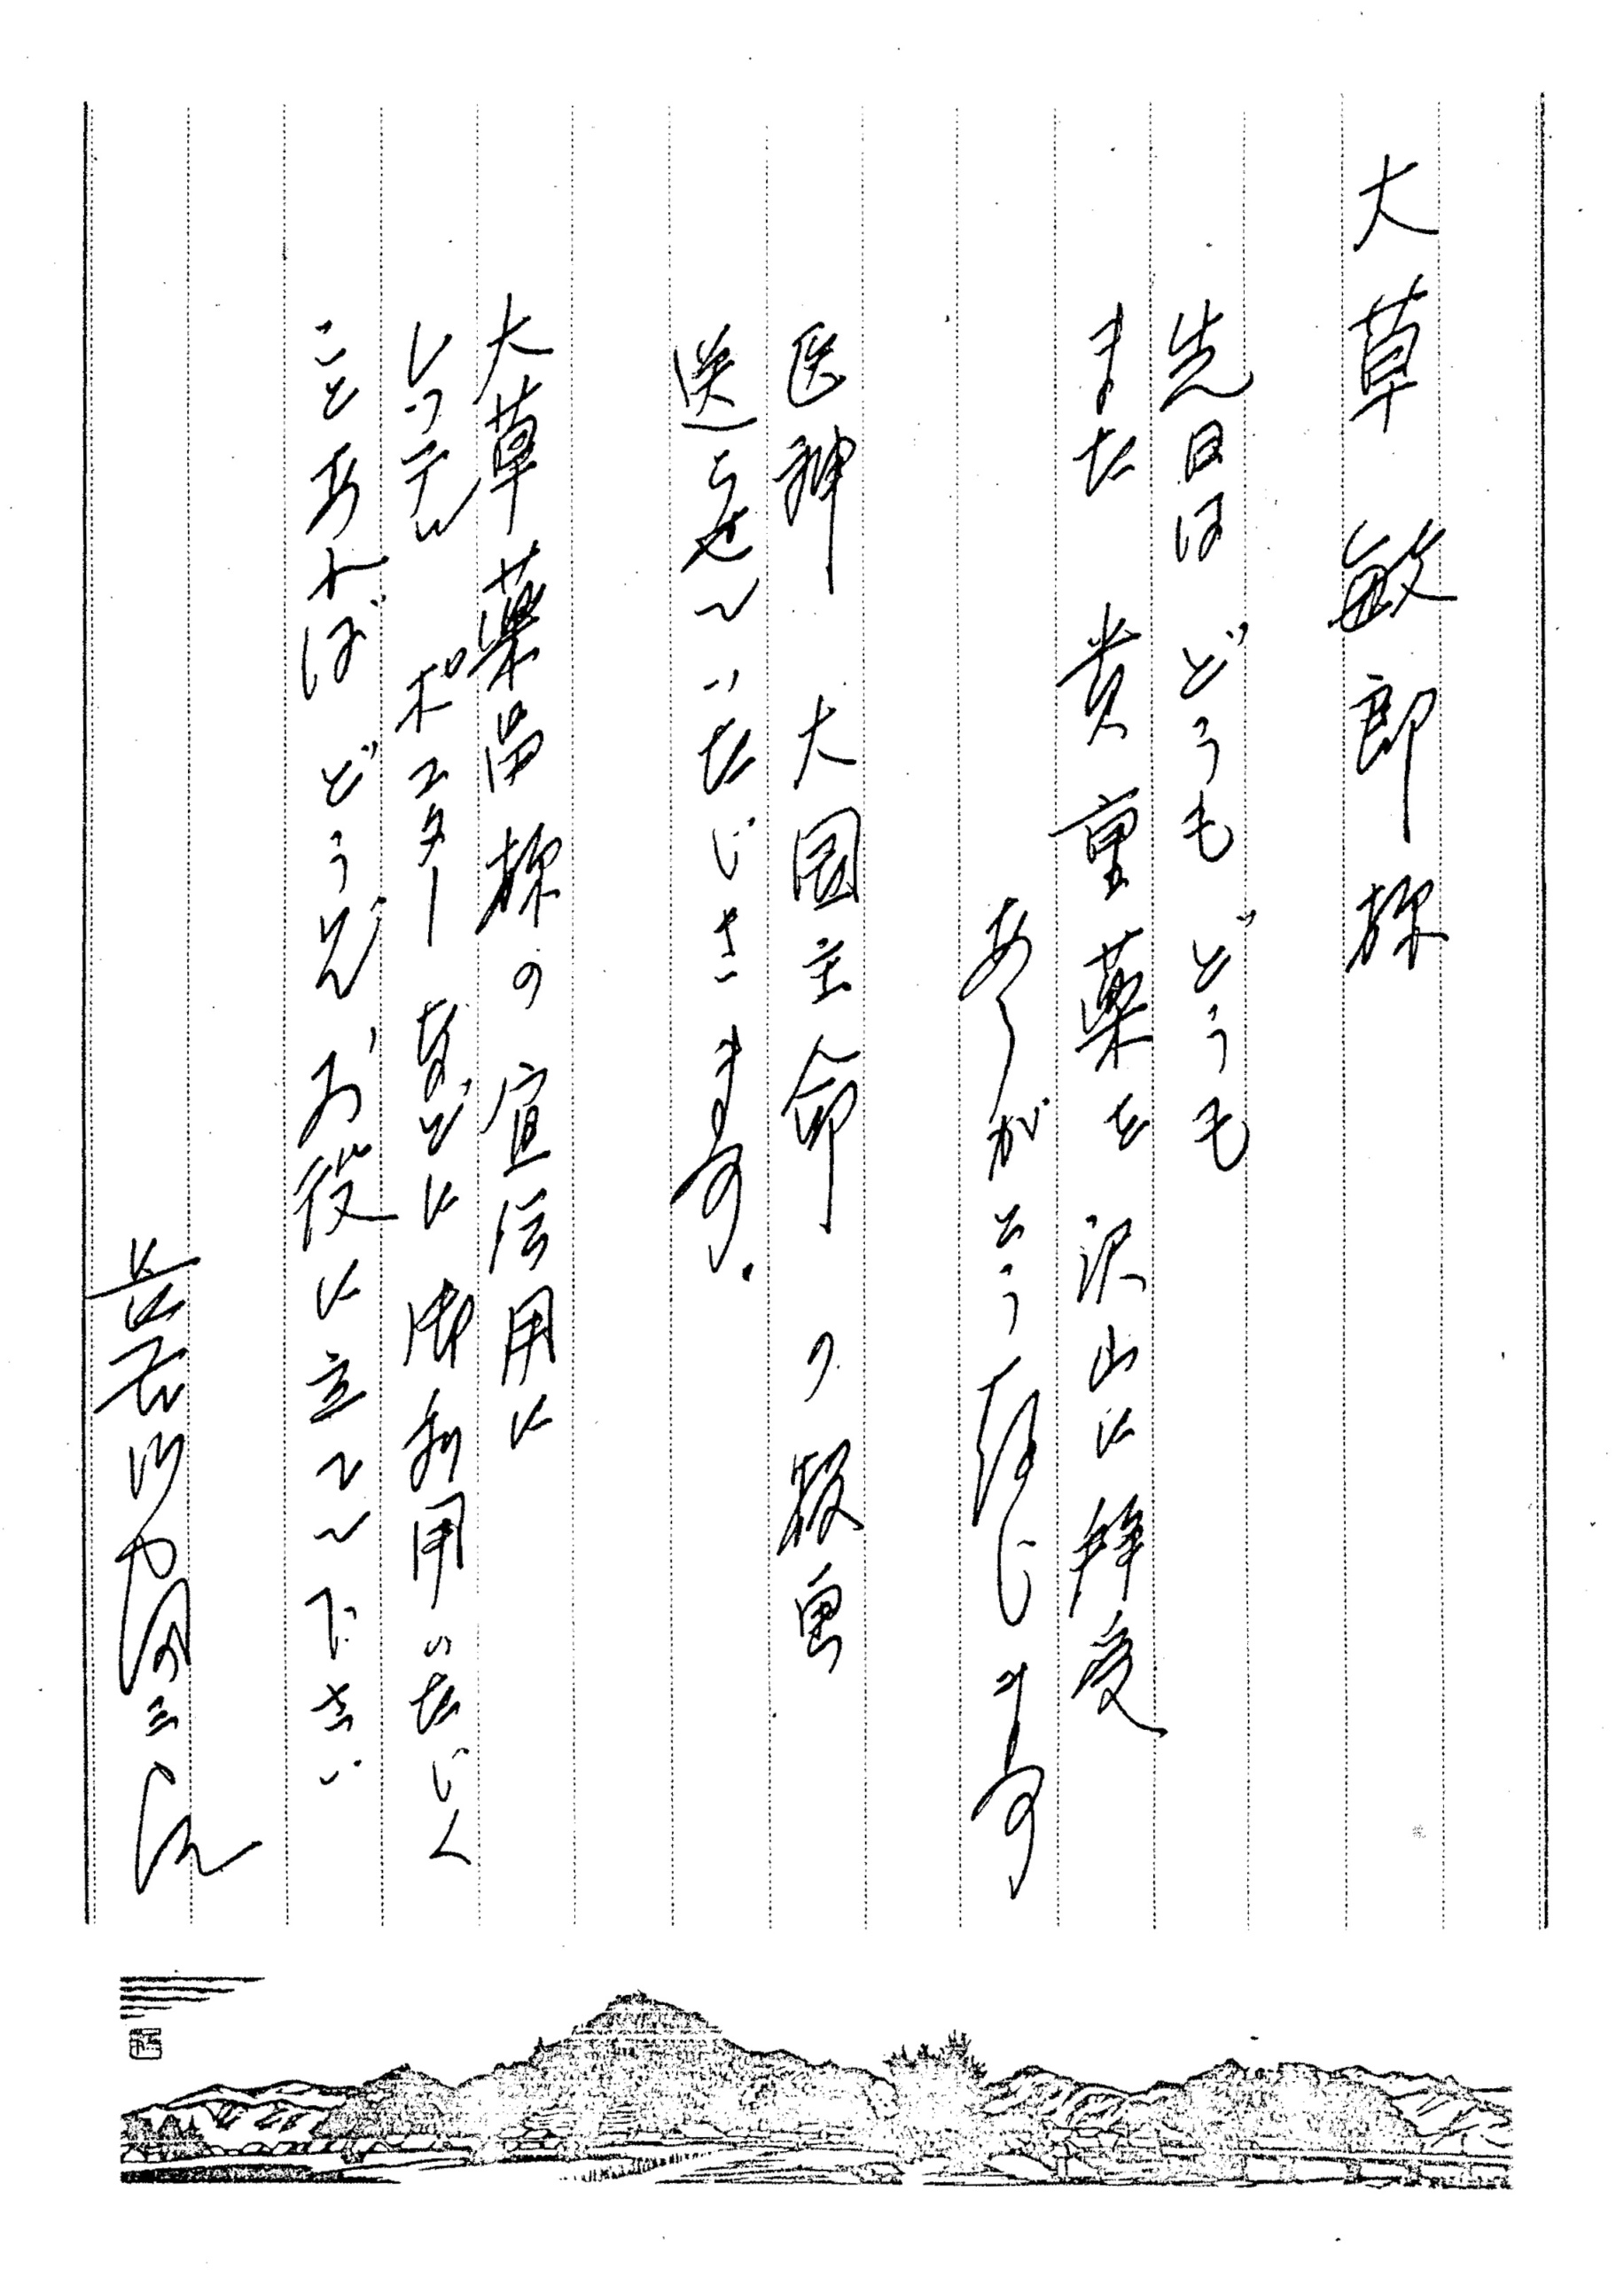 大草 敏郎 様
先日は どうも どうも
また 貴重薬を 沢山に 拝受
ありがとう存じます
医神 大国主命 の 版画
送らせていたゞきます.
大草薬品様の 宣伝用に
ポスター などに 御利用いたゞく
ことあれば どうぞ お役に立てて下さい
長谷川